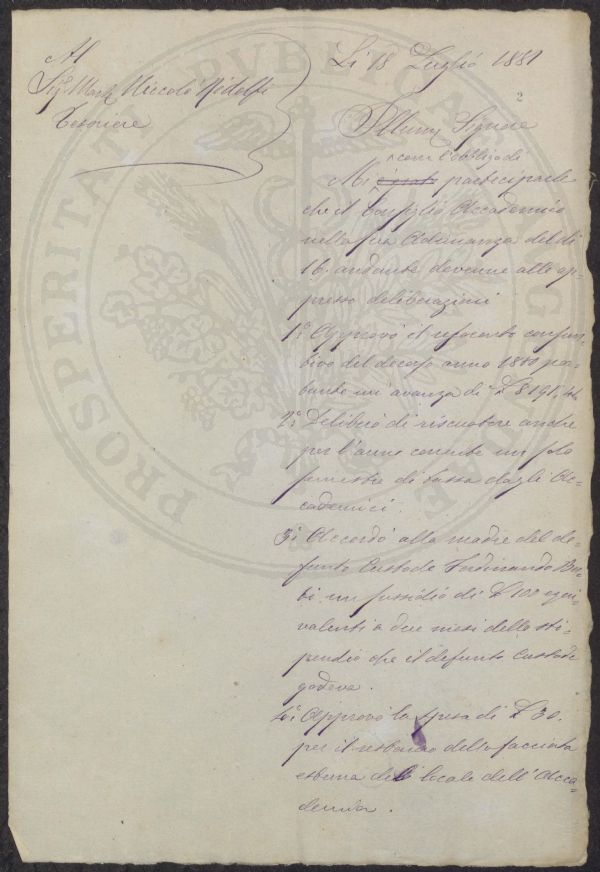 Al
Sig. March. Niccolò Ridolfi
Tesoriere
Li 18 Luglio 1881
2
Illmo Signore
con l'obbligo di
Mi partecipare
che il Consiglio Accademico
nella sua Adunanza del dì
16 andante devenne alle ap-
presso deliberazioni
1° Approvò il resoconto consun-
tivo del decorso anno 1880 por-
tante un avanzo di £ 8191,44
2° Deliberò di riscuotere anche
per l'anno corrente un solo
semestre di tassa dagli Ac-
cademici.
3° Accordò alla madre del de-
funto Custode Ferdinando
un sussidio di £ 100 equi-
valenti a due mesi dello sti-
pendio che il defunto Custode
godeva.
4° Approvò la spesa di £ 30.
per il restauro della facciata
esterna del locale dell'Acca-
demia.
PROSPERITATI PUBLICAE AUGENDAE